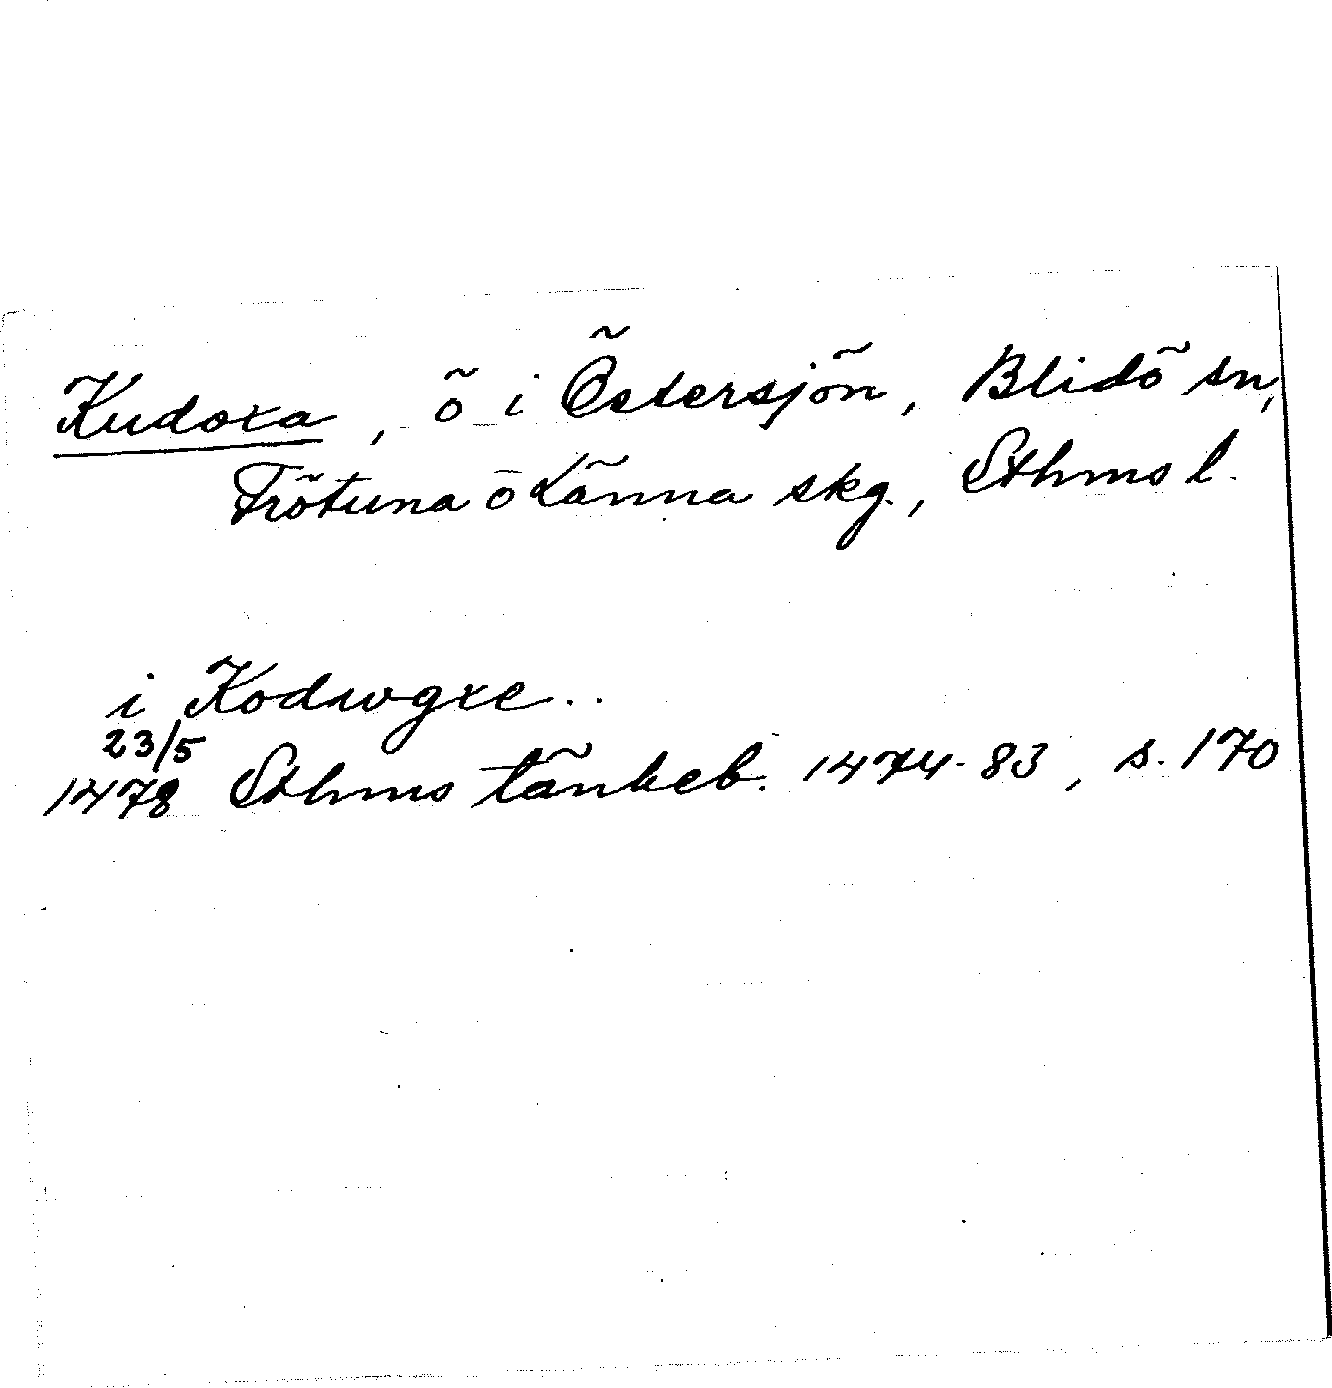 Kudoxa, ö i Östersjön, Blidö sn,
Frötuna o Länna skg., Sthms l.
i Kodwgxe..
23/5
1478 Sthms tänkeb. 1474-83, s. 170